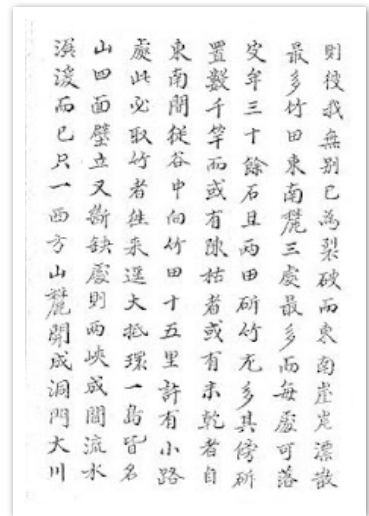 則彼我無別已為裂破而東南崖岸漂散
最多竹田東南麓三處最多而每處可落
皮牟三十餘石且兩田斫竹尤多其傍斫
置數千竿而或有陳枯者或有未乾者自
東南間從谷中向竹田十五里許有小路
處此必取竹者往來逕大抵環一島皆名
山四面壁立又斷缺處則兩峽成間流水
湲而已只一西方山麓開成洞門大川